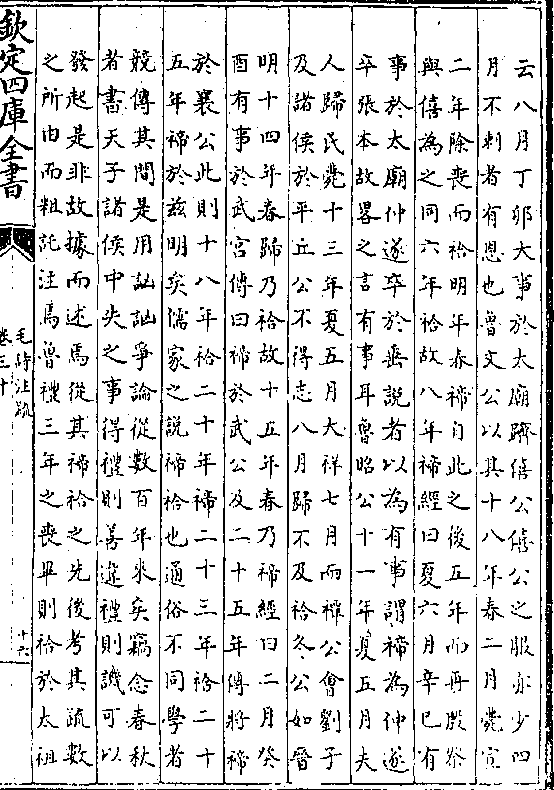 云八月丁卯大事於太廟躋僖公僖公之服亦少四
月不刺者有恩也魯文公以其十八年春二月薨宣
二年除喪而祫明年春禘自此之後五年而再殷祭
與僖為之同六年祫故八年禘經曰夏六月辛巳有
事於太廟仲遂卒於垂說者以為有事謂禘為仲遂
卒張本故畧之言有事耳魯昭公十一年夏五月夫
人歸氏薨十三年夏五月大祥七月而禫公會劉子
及諸侯於平丘公不得志八月歸不及祫冬公如晉
明十四年春歸乃祫故十五年春乃禘經曰二月癸
酉有事於武宮傳曰禘於武公及二十五年傳將禘
於襄公此則十八年祫二十年禘二十三年祫二十
五年禘於兹明矣儒家之說禘祫也通俗不同學者
競傳其聞是用訩訩爭論從數百年來矣竊念春秋
者書天子諸侯中失之事得禮則善違禮則譏可以
發起是非故據而述焉從其禘祫之先後考其疏數
之所由而粗記注焉魯禮三年之喪畢則祫於太祖
欽定四庫全書
毛詩注疏
卷三十
十六